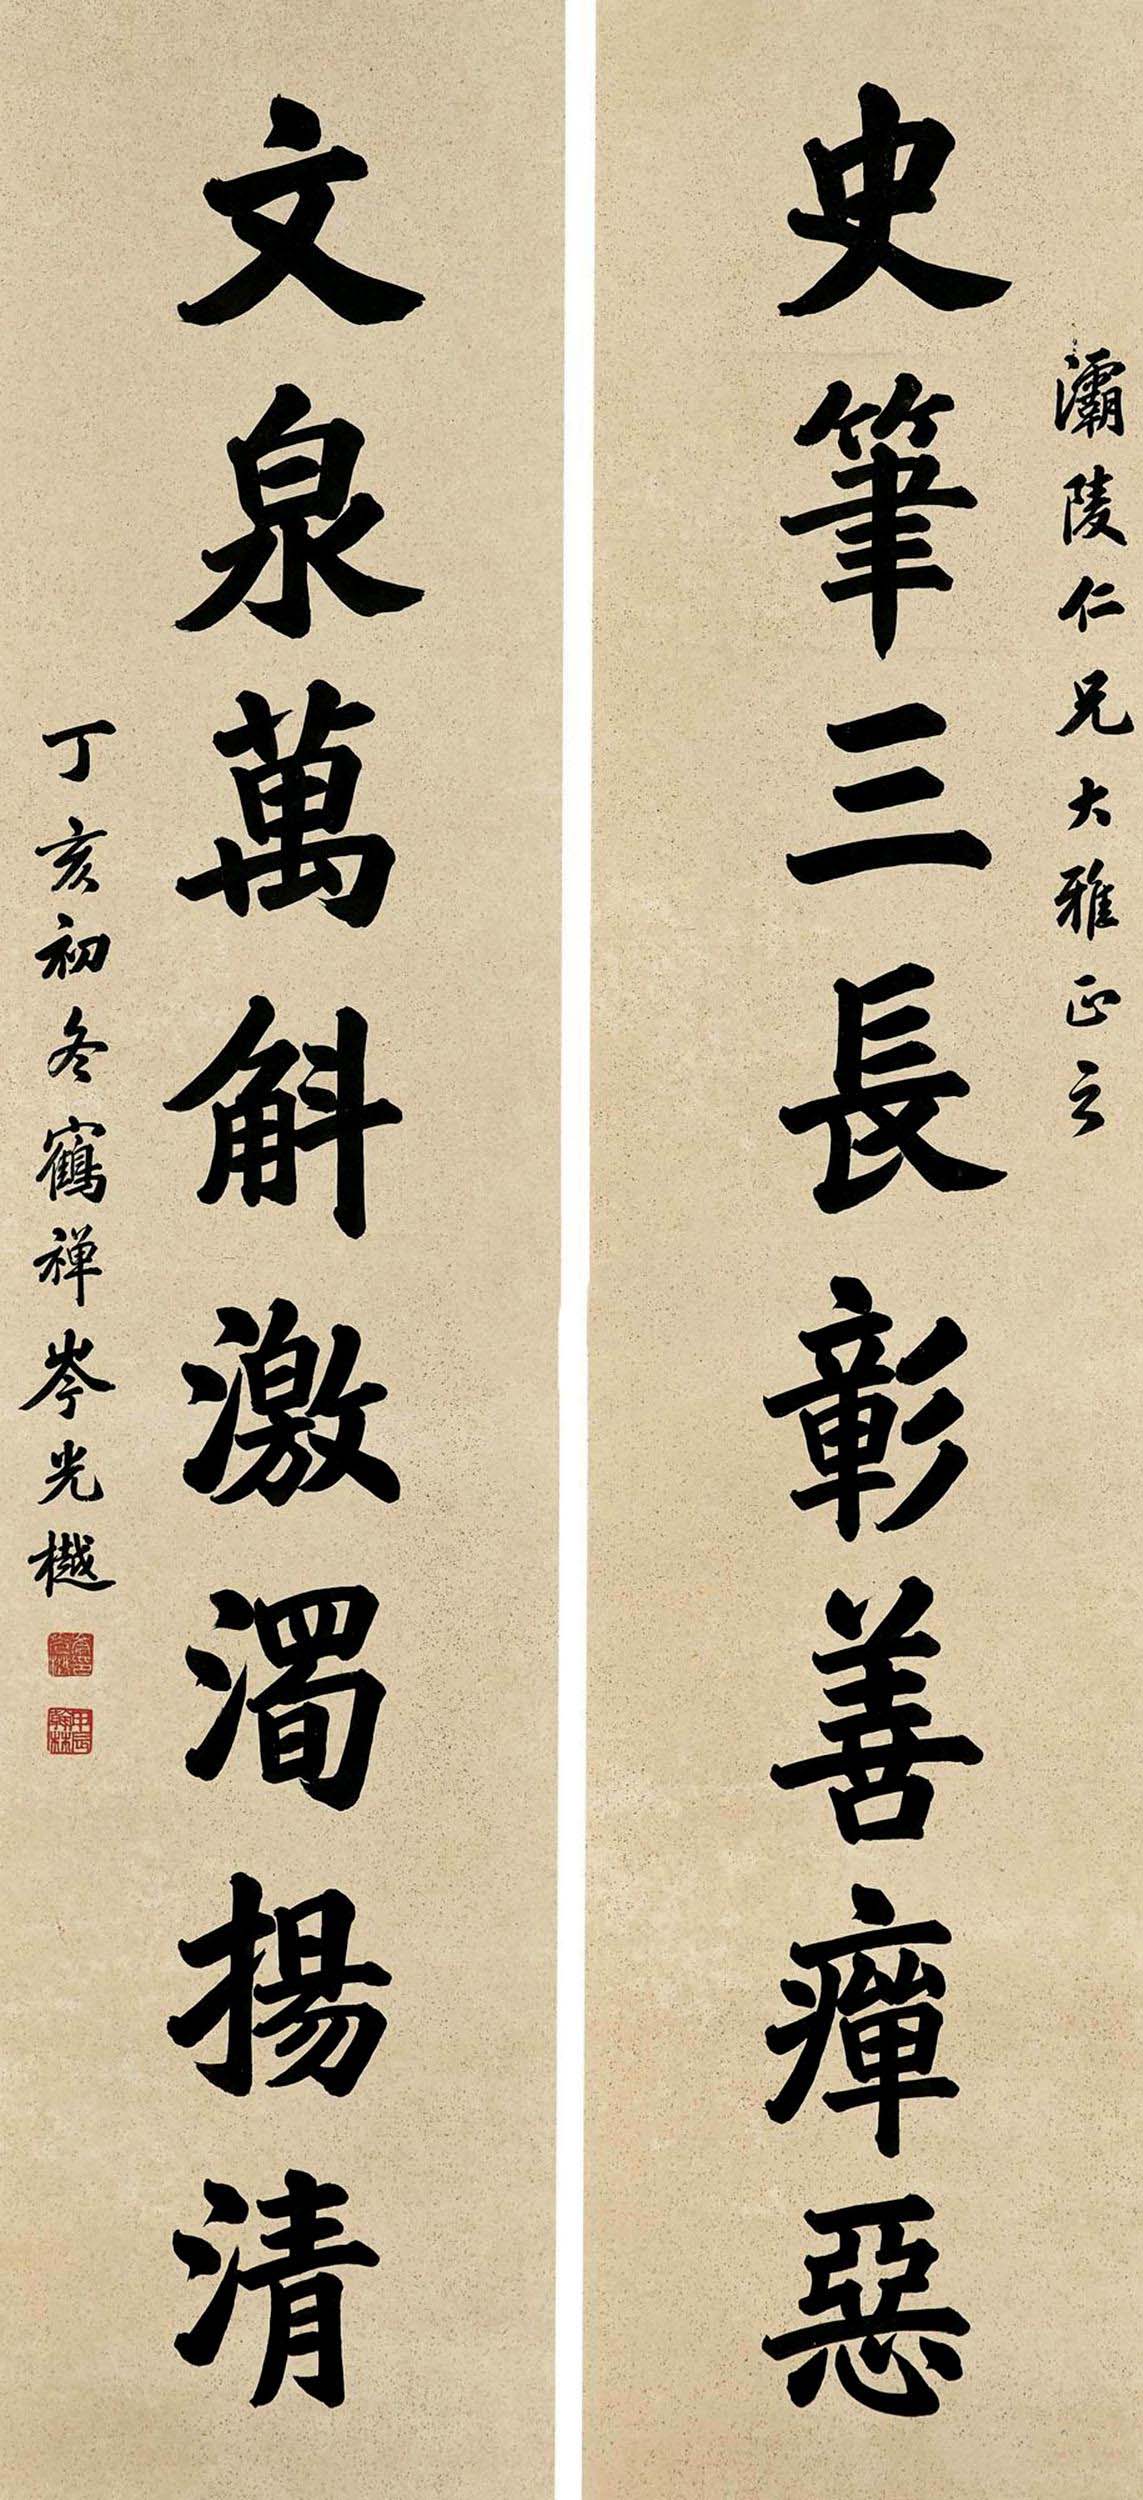 灞陵仁兄大雅正之
史筆三長彰善癉惡
文泉萬斛激濁揚清
丁亥初冬鶴禪岑光樾
甲辰翰林